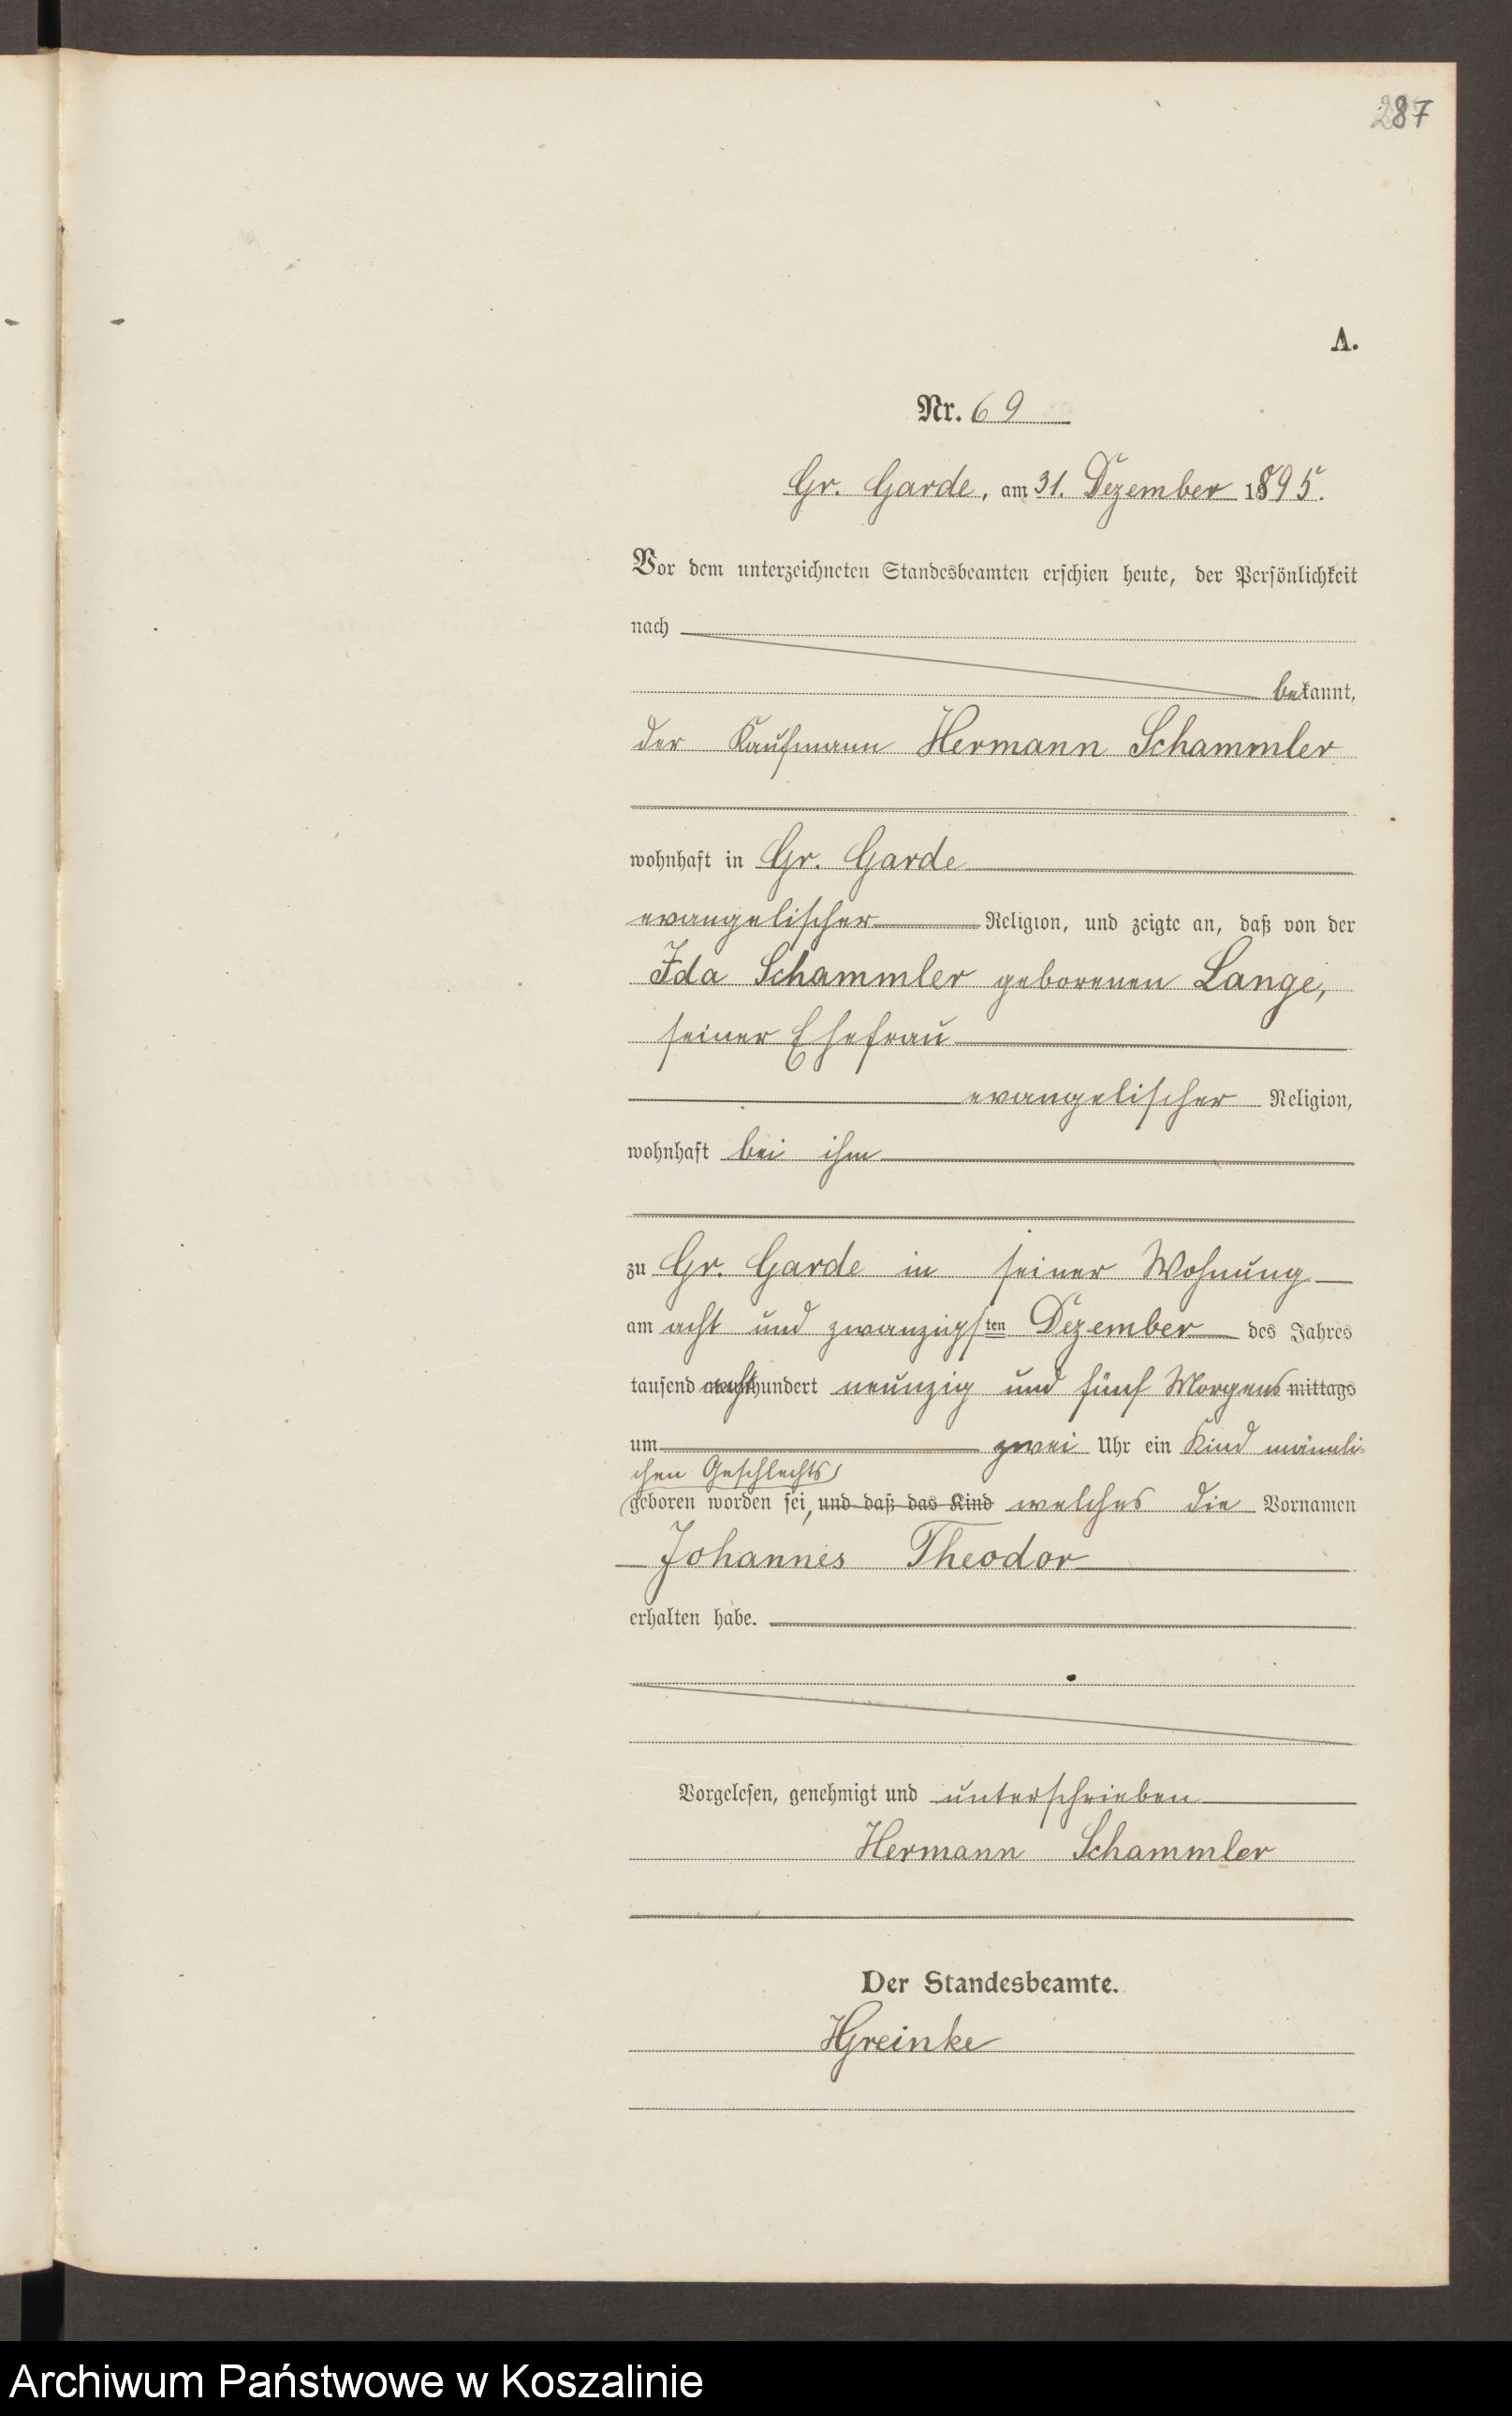 287
A.
Nr. 69
Gr. Garde, am 31. Dezember 1895.
Vor dem unterzeichneten Standesbeamten erschien heute, der Persönlichkeit
nach
bekannt,
der Kaufmann Hermann Schammler
wohnhaft in Gr. Garde
evangelischer Religion, und zeigte an, daß von der
Ida Schammler geborenen Lange,
seiner Ehefrau
evangelischer Religion,
wohnhaft bei ihm
zu Gr. Garde in seiner Wohnung
am acht und zwanzigsten Dezember des Jahres
tausend achthundert neunzig und fünf Morgens mittags
um zwei Uhr ein Kind männli-
chen Geschlechts
geboren worden sei, und daß das Kind welches die Vornamen
Johannes Theodor
erhalten habe.
Vorgelesen, genehmigt und unterschrieben
Hermann Schammler
Der Standesbeamte.
HGreinke
Archiwum Państwowe w Koszalinie